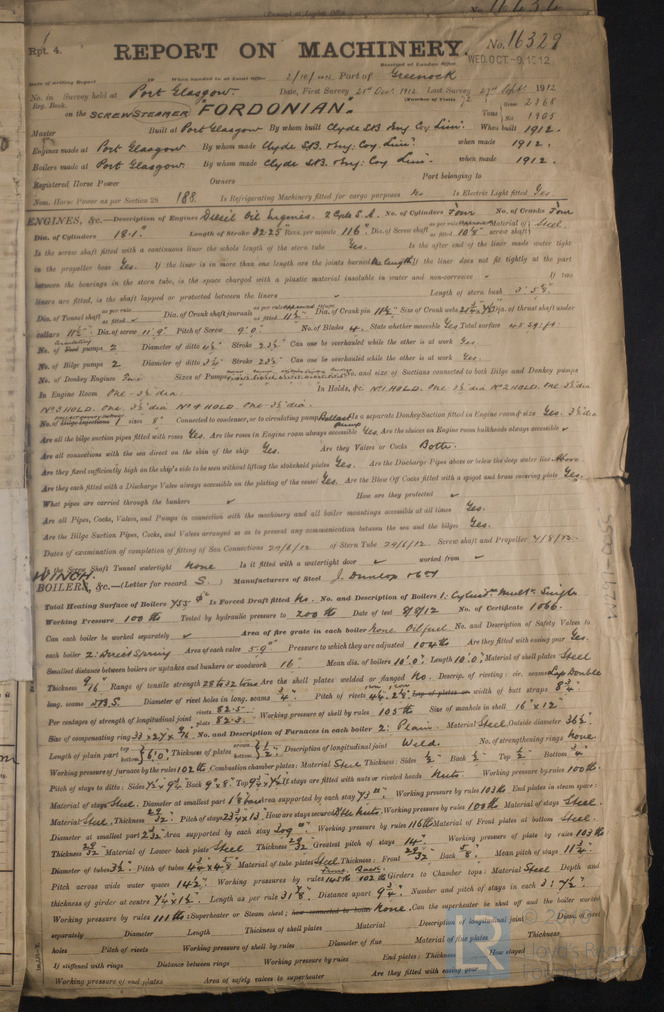 Rpt. 4.
REPORT ON MACHINERY. No. 16329
Received at London Office WED. OCT - 9. 1912
Date of writing Report 19 When handed in at Local Office 2/10/1912 Port of Greenock
No. in Survey held at Port Glasgow. Date, First Survey Last Survey Sept 1912
Reg. Book. (Number of Visits
on the SCREW STEAMER "FORDONIAN". Tons Gross 2368 Net 1905
Master Built at Port Glasgow By whom built Clyde S.B. & Eng. Coy Lim. When built 1912.
Engines made at Port Glasgow By whom made Clyde S.B. & Eng. Coy. Lim. when made 1912.
Boilers made at Port Glasgow By whom made Clyde S.B. & Eng. Coy Lim. when made 1912.
Registered Horse Power Owners Port belonging to
Nom. Horse Power as per Section 28 188. Is Refrigerating Machinery fitted for cargo purposes No Is Electric Light fitted Yes
ENGINES, &c.—Description of Engines Diesel Oil Engines. 2 Cycle S.A. No. of Cylinders Four No. of Cranks Four
Dia. of Cylinders 18.1" Length of Stroke 32.25" Revs. per minute 116 Dia. of Screw shaft as per rule as fitted 10 5/8" Material of screw shaft Steel
Is the screw shaft fitted with a continuous liner the whole length of the stern tube Yes. Is the after end of the liner made water tight
in the propeller boss Yes. If the liner is in more than one length are the joints burned One length If the liner does not fit tightly at the part
between the bearings in the stern tube, is the space charged with a plastic material insoluble in water and non-corrosive ✓ If two
liners are fitted, is the shaft lapped or protected between the liners ✓ Length of stern bush
Dia. of Tunnel shaft as per rule as fitted ✓ Dia. of Crank shaft journals as per rule as fitted 11½" Dia. of Crank pin 11½" Size of Crank webs Dia. of thrust shaft under
collars 11½" Dia. of screw 11'.9" Pitch of Screw 9'.0" No. of Blades 4. State whether moveable Yes Total surface 45.29 sq. ft.
No. of Circulating pumps 2 Diameter of ditto 4½" Stroke 23½" Can one be overhauled while the other is at work Yes.
No. of Bilge pumps 2 Diameter of ditto 3¼" Stroke 23½" Can one be overhauled while the other is at work Yes.
No. of Donkey Engines Sizes of Pumps No. and size of Suctions connected to both Bilge and Donkey pumps
In Engine Room One. 3½" dia. In Holds, &c. No 1 HOLD. One. 3½" dia No 2 HOLD. One. 3½" dia
No 3 HOLD. One. 3½" dia No 4 HOLD. One. 3½" dia.
1 sizes 8" Connected to condenser, or to circulating pump Ballast pump Is a separate Donkey Suction fitted in Engine room & size Yes. 3½" dia
Are all the bilge suction pipes fitted with roses Yes. Are the roses in Engine room always accessible Yes. Are the sluices on Engine room bulkheads always accessible ✓
Are all connections with the sea direct on the skin of the ship Yes. Are they Valves or Cocks Both.
Are they fixed sufficiently high on the ship's side to be seen without lifting the stokehold plates Yes. Are the Discharge Pipes above or below the deep water line Above
Are they each fitted with a Discharge Valve always accessible on the plating of the vessel Yes. Are the Blow Off Cocks fitted with a spigot and brass covering plate Yes.
What pipes are carried through the bunkers ✓ How are they protected ✓
Are all Pipes, Cocks, Valves, and Pumps in connection with the machinery and all boiler mountings accessible at all times Yes.
Are the Bilge Suction Pipes, Cocks, and Valves arranged so as to prevent any communication between the sea and the bilges Yes.
Dates of examination of completion of fitting of Sea Connections 29/6/12 of Stern Tube 29/6/12 Screw shaft and Propeller 7/8/12.
Is the Screw Shaft Tunnel watertight None Is it fitted with a watertight door ✓ worked from ✓
WINCH.
BOILERS, &c.—(Letter for record S.) Manufacturers of Steel J. Dunlop & Co Ltd
Total Heating Surface of Boilers Is Forced Draft fitted No. No. and Description of Boilers 1. Cylind. Mult. Single
Working Pressure 100 lb Tested by hydraulic pressure to 200 lb Date of test 8/8/12 No. of Certificate 1066.
Can each boiler be worked separately ✓ Area of fire grate in each boiler None. Oil fuel No. and Description of Safety Valves to
each boiler 2: Direct Spring Area of each valve 5.9" Pressure to which they are adjusted 104 lb Are they fitted with easing gear Yes.
Smallest distance between boilers or uptakes and bunkers or woodwork 16" Mean dia. of boilers 10'.0" Length 10'.0" Material of shell plates Steel
Thickness 9/16" Range of tensile strength 28 to 32 tons Are the shell plates welded or flanged No. Descrip. of riveting: cir. seams Lap Double
long. seams D.B.S. Diameter of rivet holes in long. seams ¾" Pitch of rivets Lap of plates or width of butt straps
Per centages of strength of longitudinal joint rivets 82.5. plate 82.3. Working pressure of shell by rules 105 lb Size of manhole in shell 16" x 12"
Size of compensating ring No. and Description of Furnaces in each boiler 2: Plain. Material Steel Outside diameter 36½"
Length of plain part top bottom 6'.0" Thickness of plates crown bottom ½" Description of longitudinal joint Weld. No. of strengthening rings None.
Working pressure of furnace by the rules 102 lb Combustion chamber plates: Material Steel Thickness: Sides ½" Back ½" Top ½" Bottom ¾"
Pitch of stays to ditto: Sides Back 9" x 8" Top If stays are fitted with nuts or riveted heads Nuts Working pressure by rules 100 lb.
Material of stays Steel. Diameter at smallest part Area supported by each stay Working pressure by rules 103 lb End plates in steam space:
Material Steel. Thickness 29/32" Pitch of stays How are stays secured Working pressure by rules 100 lb Material of stays Steel.
Diameter at smallest part Area supported by each stay Working pressure by rules 116 lb Material of Front plates at bottom Steel.
Thickness 29/32 Material of Lower back plate Steel Thickness 29/32 Greatest pitch of stays 14" Working pressure of plate by rules 103 lb
Diameter of tubes 3½" Pitch of tubes Material of tube plates Steel Thickness: Front 29/32" Back 5/8" Mean pitch of stays 11¾"
Pitch across wide water spaces 14½" Working pressures by rules 145 lb 102 lb Girders to Chamber tops: Material Steel Depth and
thickness of girder at centre Length as per rule 31 7/8" Distance apart 9¾" Number and pitch of stays in each 3: 7½"
Working pressure by rules 111 lb: Superheater or Steam chest; how connected to boiler None. Can the superheater be shut off and the boiler worked
separately Diameter Length Thickness of shell plates Material Description of longitudinal joint Diam. of rivet
holes Pitch of rivets Working pressure of shell by rules Diameter of flue Material of flue plates Thickness
If stiffened with rings Distance between rings Working pressure by rules End plates: Thickness How stayed
Working pressure of end plates Area of safety valves to superheater Are they fitted with easing gear
W291-0055
© 2020
Lloyd's Register
Foundation